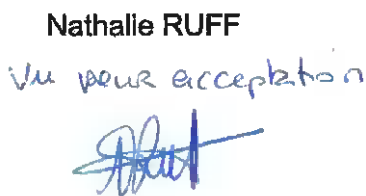 Nathalie RUFF
Vu pour acceptation